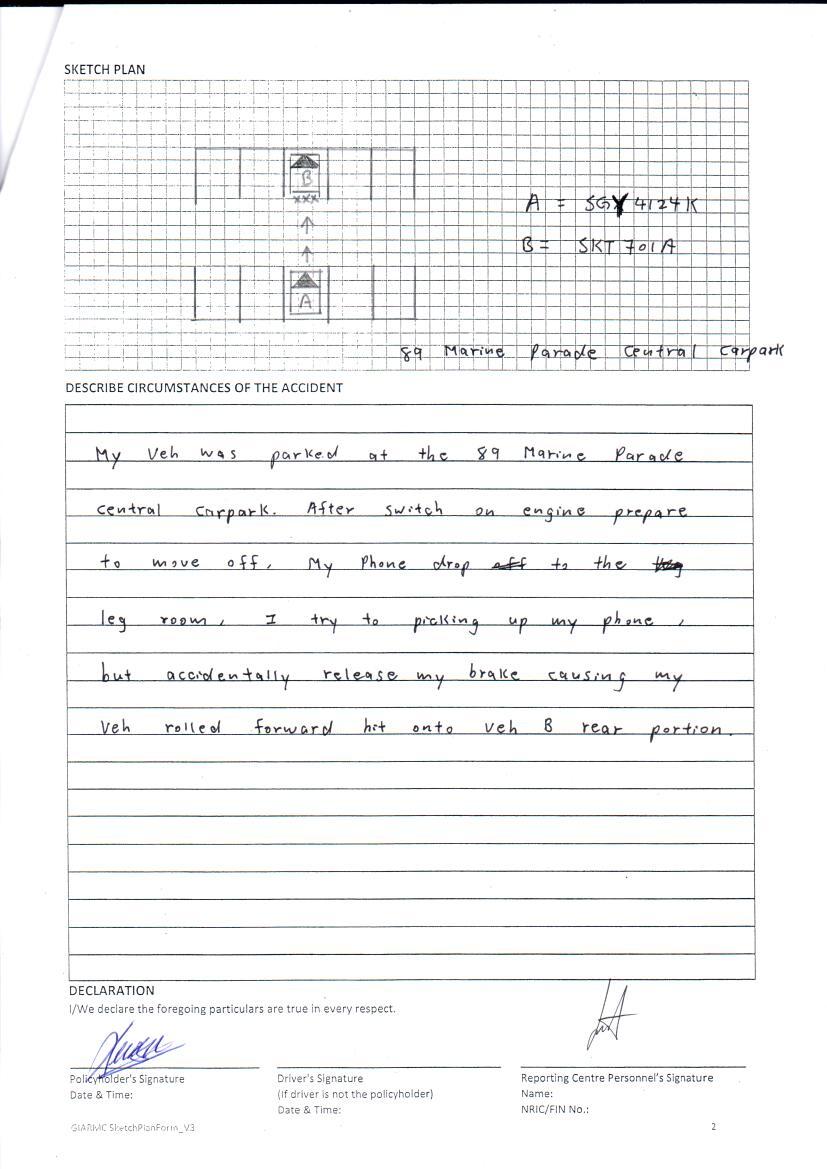 SKETCH PLAN
B
xxx
A = SGY 4124K
B = SKT 701A
A
89 Marine Parade Central Carpark
DESCRIBE CIRCUMSTANCES OF THE ACCIDENT
My Veh was parked at the 89 Marine Parade
central carpark. After switch on engine prepare
to move off, My Phone drop off to the
leg room, I try to picking up my phone,
but accidentally release my brake causing my
Veh rolled forward hit onto veh B rear portion.
DECLARATION
I/We declare the foregoing particulars are true in every respect.
Policyholder's Signature
Date & Time:
Driver's Signature
(If driver is not the policyholder)
Date & Time:
Reporting Centre Personnel's Signature
Name:
NRIC/FIN No.:
GIARMC SketchPlanForm_V3
2